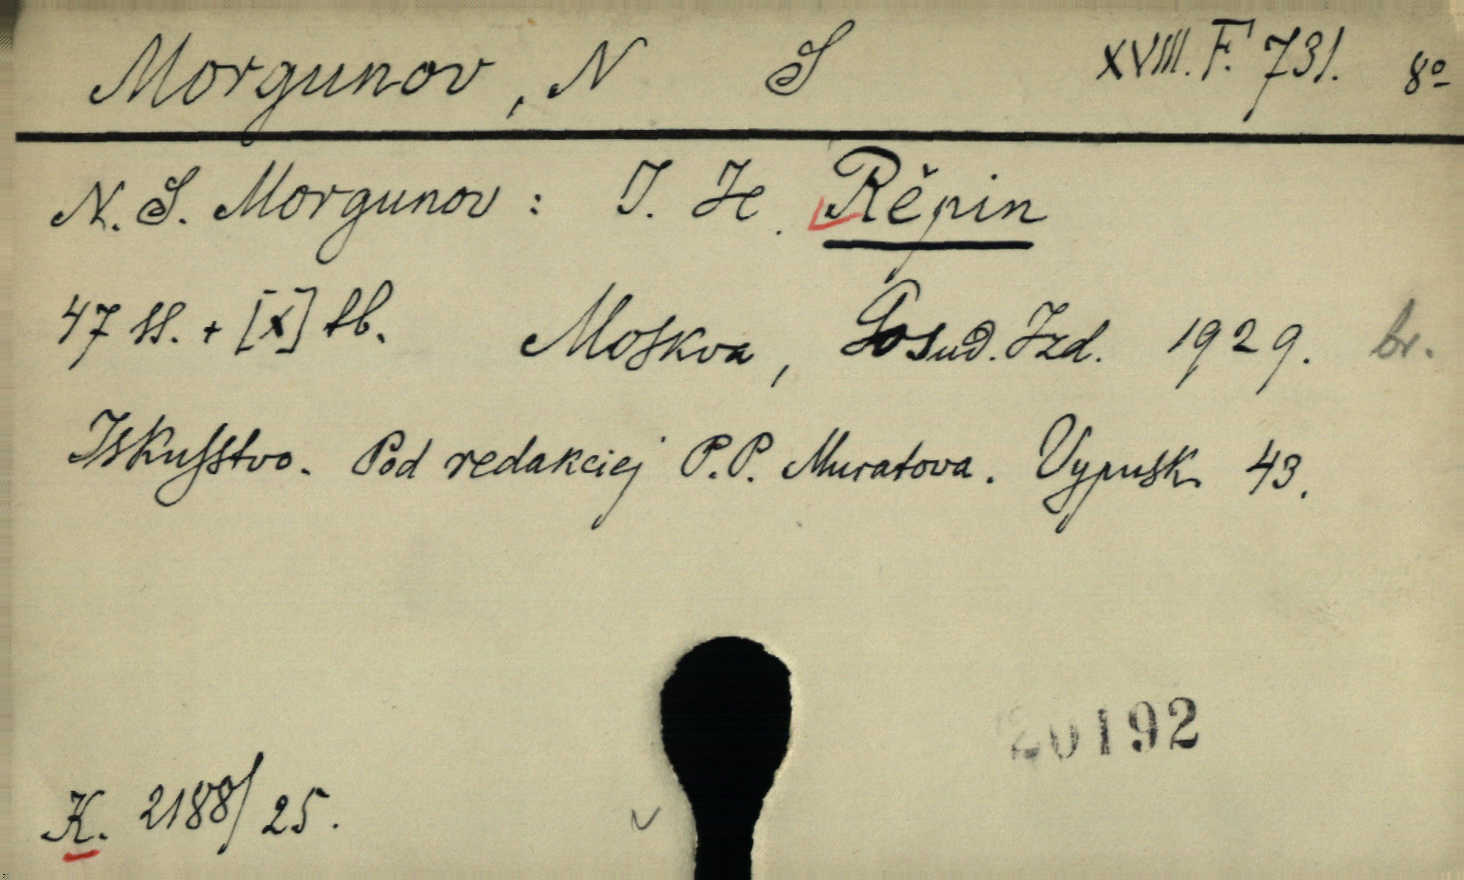 Morgunov, N S XVIII. F. 731. 8º
N. S. Morgunov: I. Je. Rěpin
47 ss. + [x] tb. Moskva, Gosud. Izd. 1929. br.
Iskusstvo. Pod redakciej P. P. Muratova. Vypusk 43.
20192
K. 2188/25.